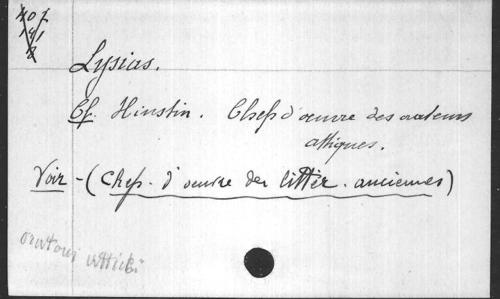 Lysias.
Cf. Hinstin. Chefs d'oeuvre des orateurs
attiques.
Voir - (Chefs. d'oeuvre des littér. anciennes)
oratori attici